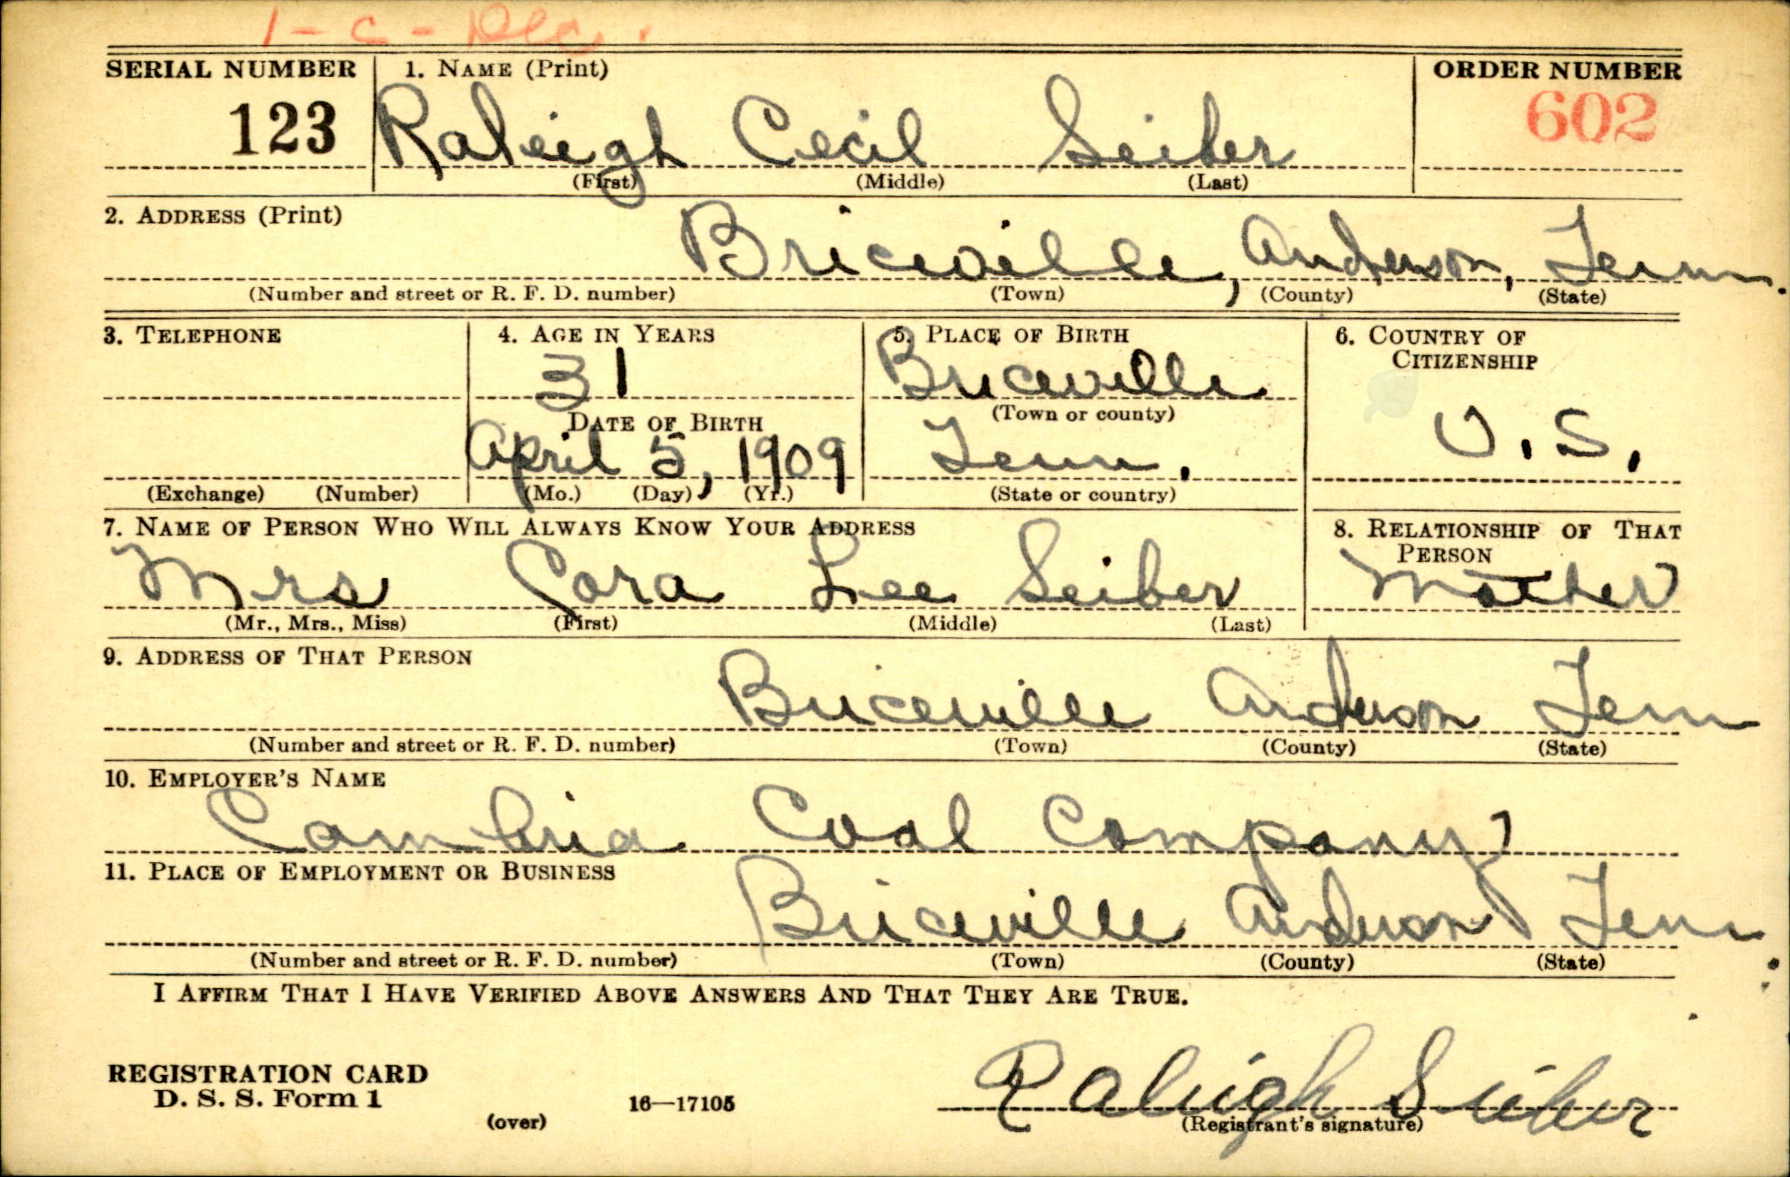 1 - C - Dec.
SERIAL NUMBER 1. NAME (Print) ORDER NUMBER
123 Raleigh Cecil Seiber 602
(First) (Middle) (Last)
2. ADDRESS (Print)
Briceville, Anderson, Tenn.
(Number and street or R. F. D. number) (Town) (County) (State)
3. TELEPHONE 4. AGE IN YEARS 5. PLACE OF BIRTH 6. COUNTRY OF
CITIZENSHIP
31 Briceville
DATE OF BIRTH (Town or county)
April 5, 1909 Tenn. U.S.
(Exchange) (Number) (Mo.) (Day) (Yr.) (State or country)
7. NAME OF PERSON WHO WILL ALWAYS KNOW YOUR ADDRESS 8. RELATIONSHIP OF THAT
PERSON
Mrs Cora Lee Seiber Mother
(Mr., Mrs., Miss) (First) (Middle) (Last)
9. ADDRESS OF THAT PERSON
Briceville Anderson Tenn
(Number and street or R. F. D. number) (Town) (County) (State)
10. EMPLOYER'S NAME
Cambria Coal Company
11. PLACE OF EMPLOYMENT OR BUSINESS
Briceville Anderson Tenn.
(Number and street or R. F. D. number) (Town) (County) (State)
I AFFIRM THAT I HAVE VERIFIED ABOVE ANSWERS AND THAT THEY ARE TRUE.
REGISTRATION CARD
D. S. S. Form 1
(over) 16—17105
Raleigh Seiber
(Registrant's signature)